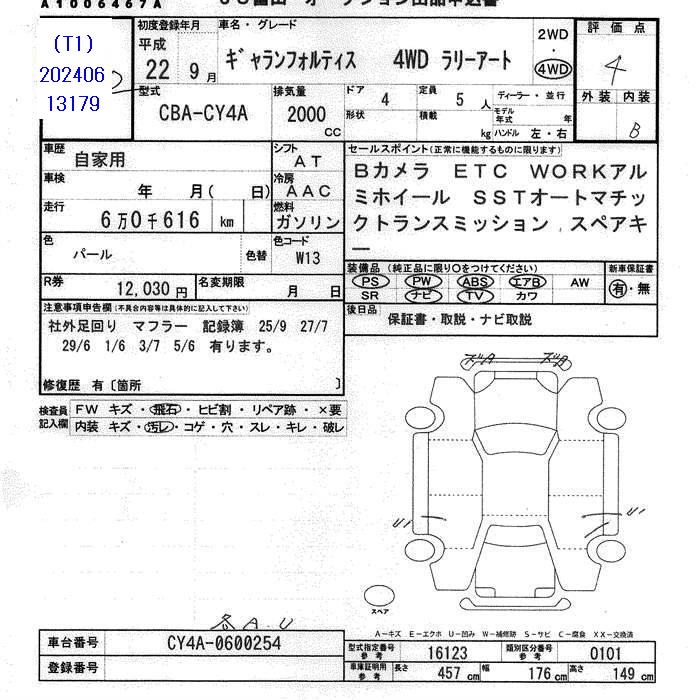 A1006467A
オークション出品申込書
(T1)
202406
13179
初度登録年月
平成
22 9 月
車名・グレード
ギャランフォルティス 4WD ラリーアート
2WD
・
4WD
評価点
4
外装 内装
B
型式
CBA-CY4A
排気量
2000
CC
ドア
4
定員
5 人
ディーラー・並行
形状
積載
kg
モデル年式
年
ハンドル 左・右
車歴
自家用
シフト
AT
車検
年 月( 日)
冷房
AAC
走行
6万0千616 km
燃料
ガソリン
色
パール
色替
色コード
W13
セールスポイント(正常に機能するものに限ります)
Bカメラ ETC WORKアル
ミホイール SSTオートマチッ
クトランスミッション、スペアキ
ー
R券
12,030 円
名変期限
月 日
装備品 (純正品に限り○をつけてください)
PS PW ABS エアB AW
SR ナビ TV カワ
新車保証書
有・無
後日品
保証書・取説・ナビ取説
注意事項申告欄(不具合内容等は具体的に記入して下さい)
社外足回り マフラー 記録簿 25/9 27/7
29/6 1/6 3/7 5/6 有ります。
修復歴 有〔箇所 〕
検査員
記入欄
FW キズ・飛石・ヒビ割・リペア跡・×要
内装 キズ・汚レ・コゲ・穴・スレ・キレ・破レ
ズA ズA
U1
U1
スペア
各A.U
A-キズ E-エクボ U-凹み W-補修跡 S-サビ C-腐食 XX-交換済
車台番号
CY4A-0600254
登録番号
型式指定番号
参考
16123
類別区分番号
参考
0101
車庫証明用
参考
長さ
457 cm
幅
176 cm
高さ
149 cm